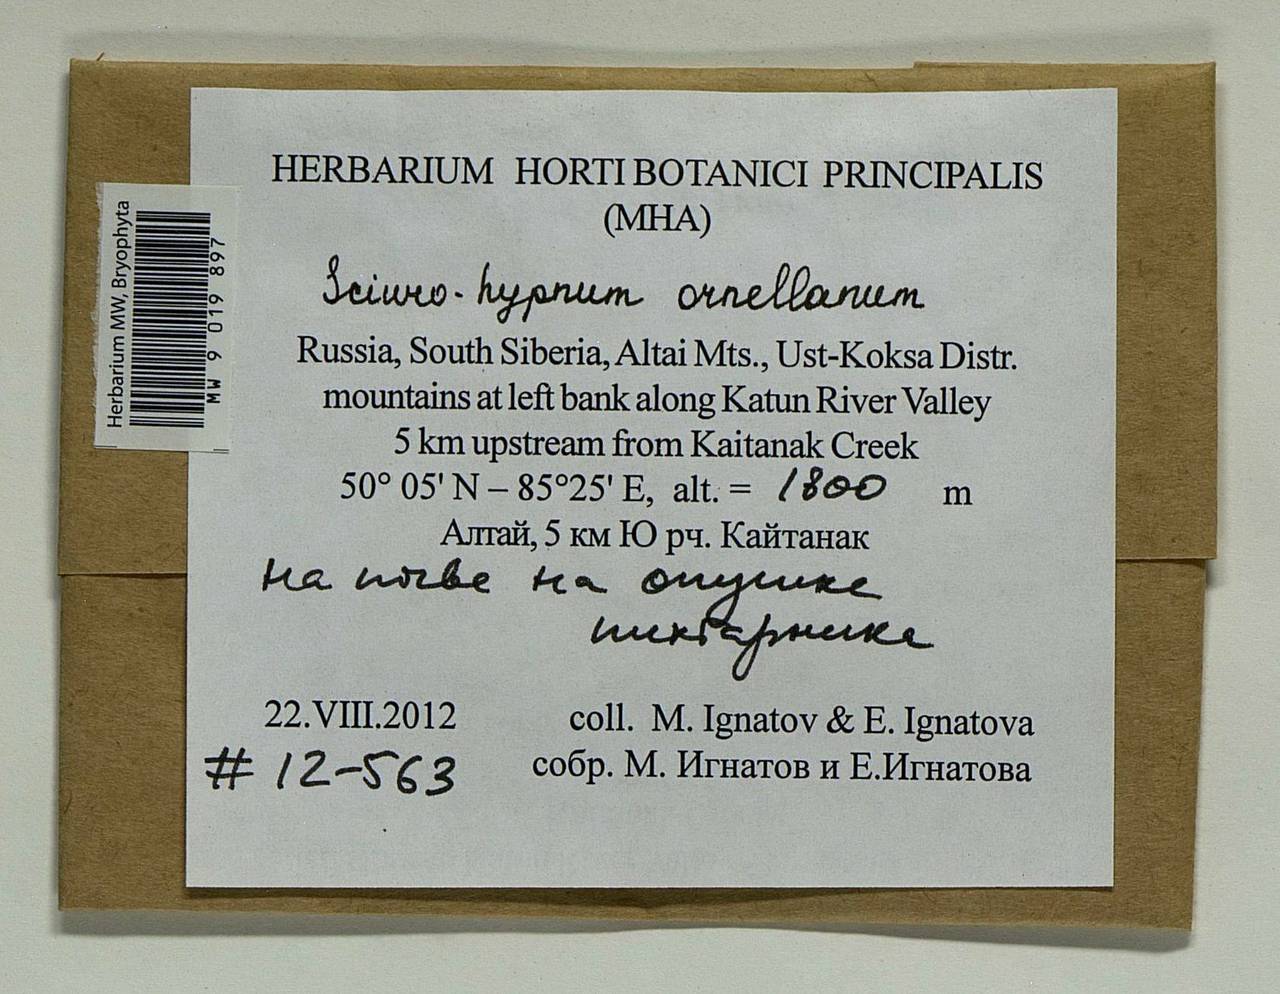 HERBARIUM HORTI BOTANICI PRINCIPALIS
(MHA)
Sciuro-hypnum ornellanum
Russia, South Siberia, Altai Mts., Ust-Koksa Distr.
mountains at left bank along Katun River Valley
5 km upstream from Kaitanak Creek
50° 05' N – 85°25' E, alt. = 1800 m
Алтай, 5 км Ю рч. Кайтанак
на почве на опушке
пихтарника
22.VIII.2012 coll. M. Ignatov & E. Ignatova
# 12-563 собр. М. Игнатов и Е.Игнатова
Herbarium MW, Bryophyta
MW 9 019 897